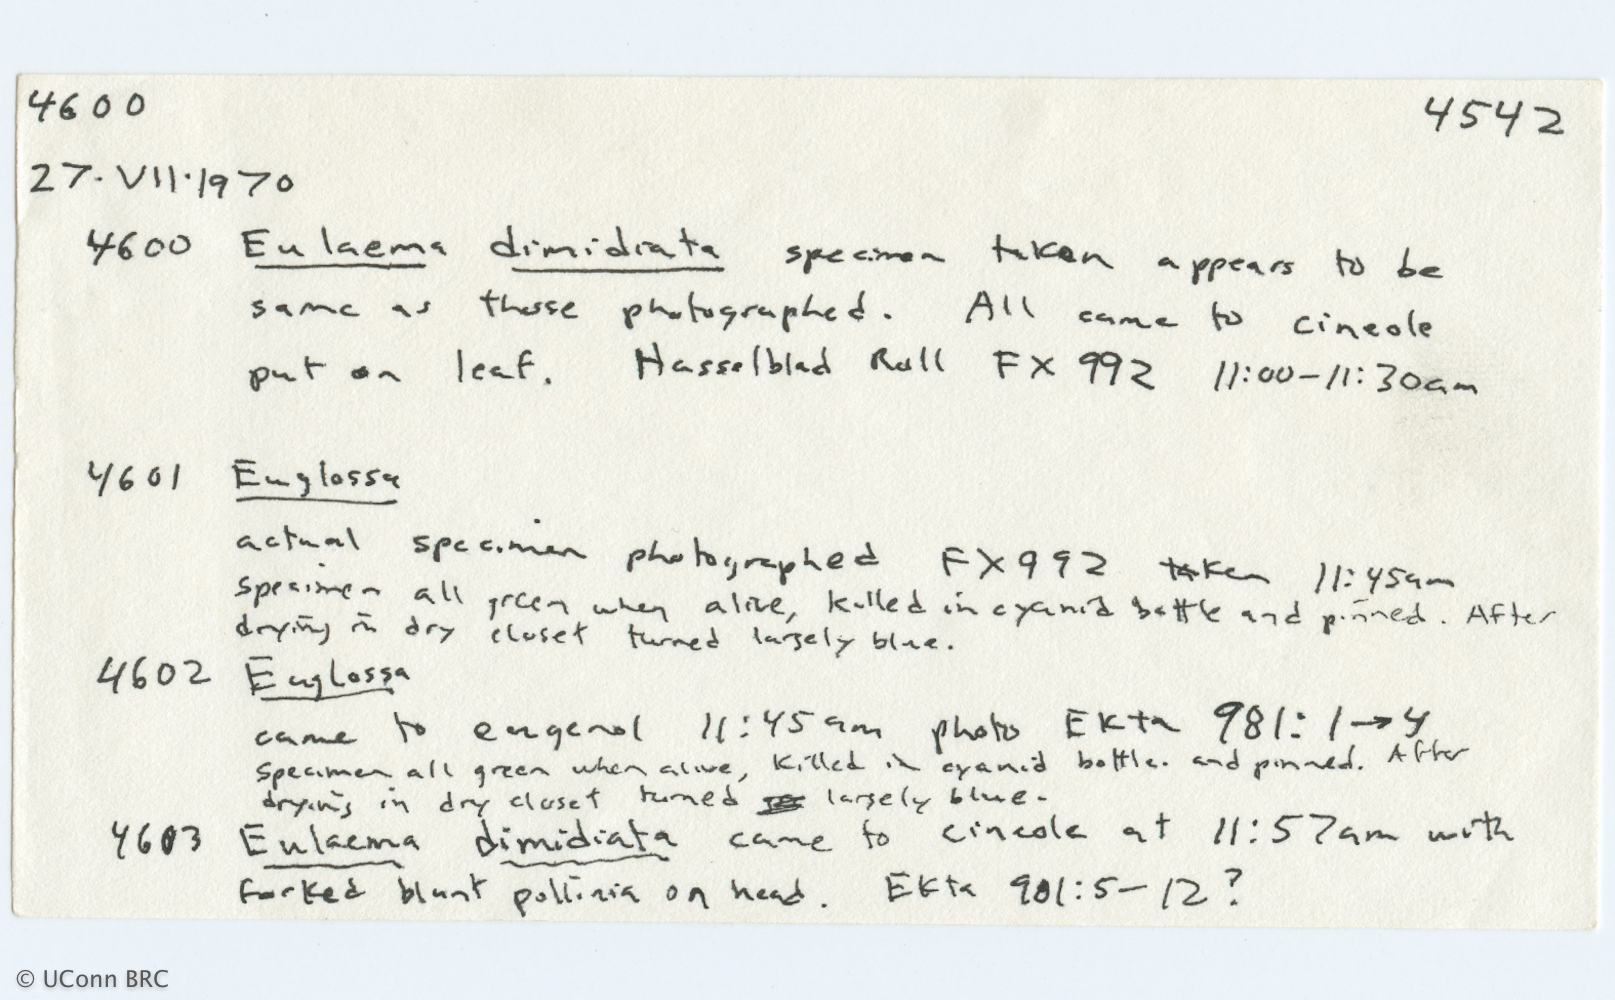 4600 4542
27.VII.1970
4600 Eulaema dimidiata specimen taken appears to be
same as those photographed. All came to cineole
put on leaf. Hasselblad Roll FX 992 11:00-11:30am
4601 Euglossa
actual specimen photographed FX992 taken 11:45am
specimen all green when alive, killed in cyanid bottle and pinned. After
drying in dry closet turned largely blue.
4602 Euglossa
came to eugenol 11:45am photo Ekta 981:1→4
specimen all green when alive, killed in cyanid bottle. and pinned. After
drying in dry closet turned largely blue.
4603 Eulaema dimidiata came to cineole at 11:57am with
forked blunt pollinia on head. Ekta 981:5-12?
© UConn BRC